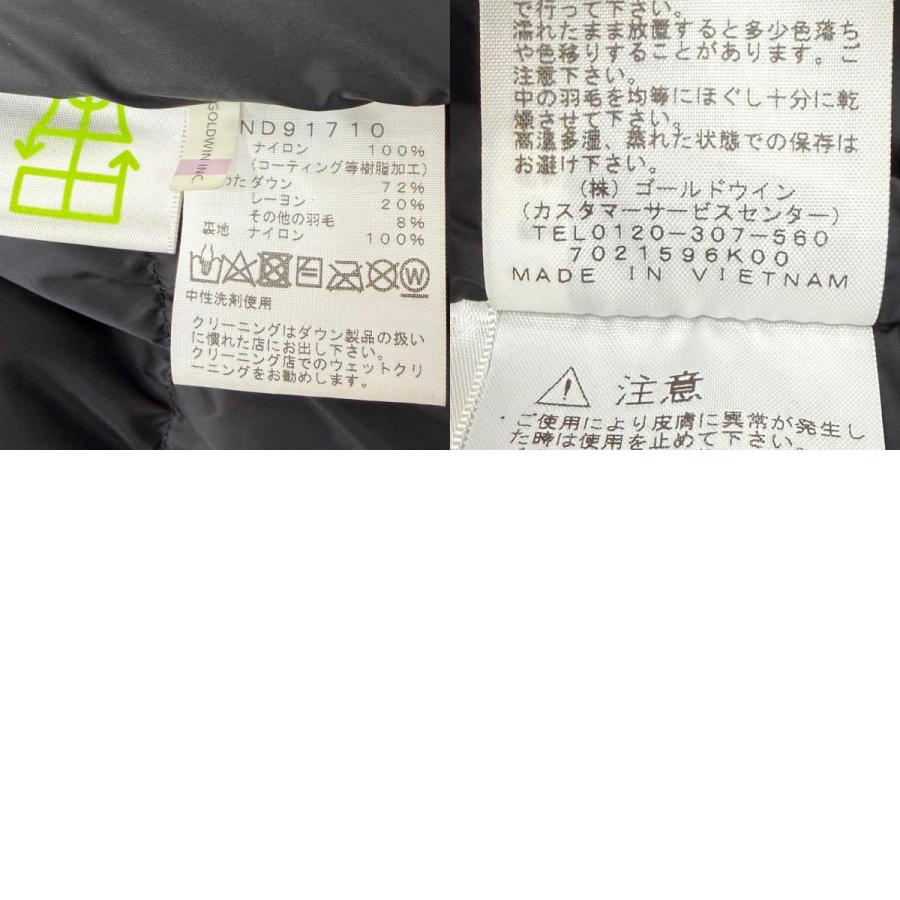 GOLDWIN INC.
ND91710
ナイロン 100%
(コーティング等樹脂加工)
わた ダウン 72%
レーヨン 20%
その他の羽毛 8%
裏地 ナイロン 100%
W
中性洗剤使用
クリーニングはダウン製品の扱い
に慣れた店にお出し下さい。
クリーニング店でのウェットクリ
ーニングをお勧めします。
で行って下さい。
濡れたまま放置すると多少色落ち
や色移りすることがあります。ご
注意下さい。
中の羽毛を均等にほぐし十分に乾
燥させて下さい。
高温多湿、蒸れた状態での保存は
お避け下さい。
(株) ゴールドウイン
(カスタマーサービスセンター)
TEL0120-307-560
7021596K00
MADE IN VIETNAM
注意
・ご使用により皮膚に異常が発生し
た時は使用を止めて下さい。